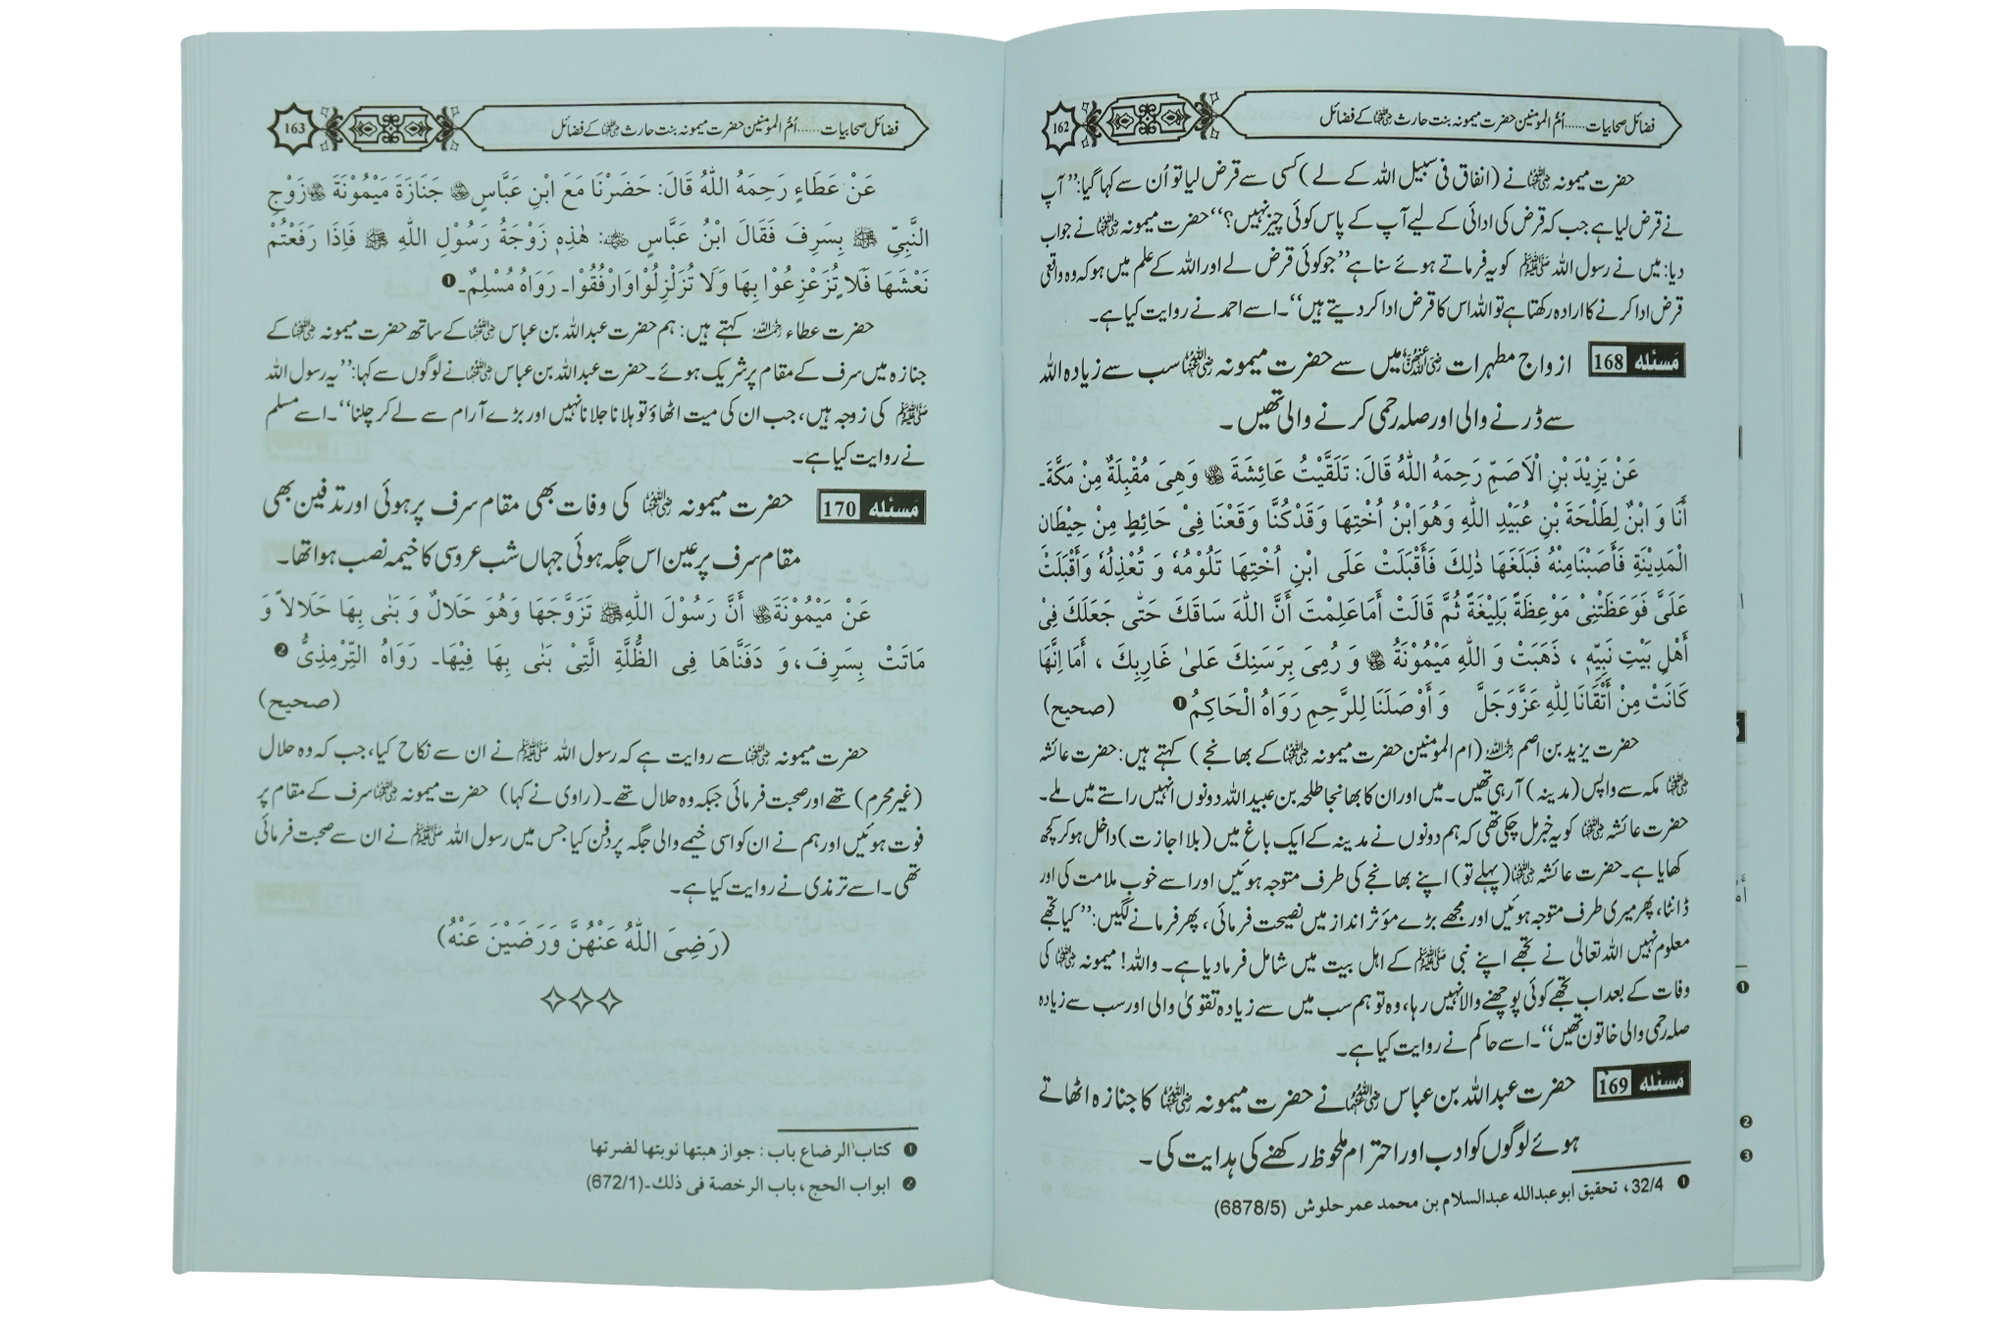 162
فضائل صحابیات......اُمّ المومنین حضرت میمونہ بنت حارث رضی اللہ عنہا کے فضائل
حضرت میمونہ رضی اللہ عنہا نے (انفاق فی سبیل اللہ کے لے) کسی سے قرض لیا تو اُن سے کہا گیا: ’’آپ
نے قرض لیا ہے جب کہ قرض کی ادائی کے لیے آپ کے پاس کوئی چیز نہیں؟‘‘ حضرت میمونہ رضی اللہ عنہا نے جواب
دیا: میں نے رسول اللہ ﷺ کو یہ فرماتے ہوئے سنا ہے ’’جو کوئی قرض لے اور اللہ کے علم میں ہو کہ وہ واقعی
قرض ادا کرنے کا ارادہ رکھتا ہے تو اللہ اس کا قرض ادا کر دیتے ہیں‘‘۔ اسے احمد نے روایت کیا ہے۔
مَسئله 168 ازواج مطہرات رضی اللہ عنہن میں سے حضرت میمونہ رضی اللہ عنہا سب سے زیادہ اللہ
سے ڈرنے والی اور صلہ رحمی کرنے والی تھیں۔
عَنْ يَزِيْدَ بْنِ الْاَصَمِّ رَحِمَهُ اللهُ قَالَ: تَلَقَّيْتُ عَائِشَةَ رضی اللہ عنہا وَهِىَ مُقْبِلَةٌ مِنْ مَكَّةَ۔
أَنَا وَ ابْنٌ لِطَلْحَةَ بْنِ عُبَيْدِ اللهِ وَهُوَ ابْنُ اُخْتِهَا وَقَدْ كُنَّا وَقَعْنَا فِىْ حَائِطٍ مِنْ حِيْطَانِ
الْمَدِيْنَةِ فَأَصَبْنَا مِنْهُ فَبَلَغَهَا ذٰلِكَ فَأَقْبَلَتْ عَلَى ابْنِ اُخْتِهَا تَلُوْمُهٗ وَ تُعْذِلُهٗ وَأَقْبَلَتْ
عَلَىَّ فَوَعَظَتْنِىْ مَوْعِظَةً بَلِيْغَةً ثُمَّ قَالَتْ أَمَا عَلِمْتَ أَنَّ اللهَ سَاقَكَ حَتّٰى جَعَلَكَ فِىْ
أَهْلِ بَيْتِ نَبِيِّهٖ ، ذَهَبَتْ وَ اللهِ مَيْمُوْنَةُ رضی اللہ عنہا وَ رُمِىَ بِرَسَنِكَ عَلىٰ غَارِبِكَ ، أَمَا اِنَّهَا
كَانَتْ مِنْ أَتْقَانَا لِلّٰهِ عَزَّوَجَلَّ وَ أَوْصَلَنَا لِلرَّحِمِ رَوَاهُ الْحَاكِمُ❶ (صحيح)
حضرت یزید بن اصم رحمہ اللہ (ام المومنین حضرت میمونہ رضی اللہ عنہا کے بھانجے) کہتے ہیں: حضرت عائشہ
رضی اللہ عنہا مکہ سے واپس (مدینہ) آ رہی تھیں۔ میں اور ان کا بھانجا طلحہ بن عبیداللہ دونوں انہیں راستے میں ملے۔
حضرت عائشہ رضی اللہ عنہا کو یہ خبر مل چکی تھی کہ ہم دونوں نے مدینہ کے ایک باغ میں (بلا اجازت) داخل ہو کر کچھ
کھایا ہے۔ حضرت عائشہ رضی اللہ عنہا (پہلے تو) اپنے بھانجے کی طرف متوجہ ہوئیں اور اسے خوب ملامت کی اور
ڈانٹا، پھر میری طرف متوجہ ہوئیں اور مجھے بڑے مؤثر انداز میں نصیحت فرمائی، پھر فرمانے لگیں: ’’کیا تجھے
معلوم نہیں اللہ تعالیٰ نے تجھے اپنے نبی ﷺ کے اہل بیت میں شامل فرما دیا ہے۔ واللہ! میمونہ رضی اللہ عنہا کی
وفات کے بعد اب تجھے کوئی پوچھنے والا نہیں رہا، وہ تو ہم سب میں سے زیادہ تقویٰ والی اور سب سے زیادہ
صلہ رحمی والی خاتون تھیں‘‘۔ اسے حاکم نے روایت کیا ہے۔
مَسئله 169 حضرت عبداللہ بن عباس رضی اللہ عنہما نے حضرت میمونہ رضی اللہ عنہا کا جنازہ اٹھاتے
ہوئے لوگوں کو ادب اور احترام ملحوظ رکھنے کی ہدایت کی۔
❶ 32/4 ، تحقيق ابو عبدالله عبدالسلام بن محمد عمر حلوش (6878/5)
163
فضائل صحابیات......اُمّ المومنین حضرت میمونہ بنت حارث رضی اللہ عنہا کے فضائل
عَنْ عَطَاءٍ رَحِمَهُ اللهُ قَالَ: حَضَرْنَا مَعَ ابْنِ عَبَّاسٍ رضی اللہ عنہما جَنَازَةَ مَيْمُوْنَةَ رضی اللہ عنہا زَوْجِ
النَّبِىِّ ﷺ بِسَرِفَ فَقَالَ ابْنُ عَبَّاسٍ رضی اللہ عنہما: هٰذِهٖ زَوْجَةُ رَسُوْلِ اللهِ ﷺ فَاِذَا رَفَعْتُمْ
نَعْشَهَا فَلَا تُزَعْزِعُوْا بِهَا وَلَا تُزَلْزِلُوْا وَارْفُقُوْا۔ رَوَاهُ مُسْلِمٌ۔❶
حضرت عطاء رحمہ اللہ کہتے ہیں: ہم حضرت عبداللہ بن عباس رضی اللہ عنہما کے ساتھ حضرت میمونہ رضی اللہ عنہا کے
جنازہ میں سرف کے مقام پر شریک ہوئے۔ حضرت عبداللہ بن عباس رضی اللہ عنہما نے لوگوں سے کہا: ’’یہ رسول اللہ
ﷺ کی زوجہ ہیں، جب ان کی میت اٹھاؤ تو ہلانا جلانا نہیں اور بڑے آرام سے لے کر چلنا‘‘۔ اسے مسلم
نے روایت کیا ہے۔
مَسئله 170 حضرت میمونہ رضی اللہ عنہا کی وفات بھی مقام سرف پر ہوئی اور تدفین بھی
مقام سرف پر عین اس جگہ ہوئی جہاں شب عروسی کا خیمہ نصب ہوا تھا۔
عَنْ مَيْمُوْنَةَ رضی اللہ عنہا أَنَّ رَسُوْلَ اللهِ ﷺ تَزَوَّجَهَا وَهُوَ حَلَالٌ وَ بَنٰى بِهَا حَلَالاً وَ
مَاتَتْ بِسَرِفَ، وَ دَفَنَّاهَا فِى الظُّلَّةِ الَّتِىْ بَنٰى بِهَا فِيْهَا۔ رَوَاهُ التِّرْمِذِىُّ❷
(صحيح)
حضرت میمونہ رضی اللہ عنہا سے روایت ہے کہ رسول اللہ ﷺ نے ان سے نکاح کیا، جب کہ وہ حلال
(غیر محرم) تھے اور صحبت فرمائی جبکہ وہ حلال تھے۔ (راوی نے کہا) حضرت میمونہ رضی اللہ عنہا سرف کے مقام پر
فوت ہوئیں اور ہم نے ان کو اسی خیمے والی جگہ پر دفن کیا جس میں رسول اللہ ﷺ نے ان سے صحبت فرمائی
تھی۔ اسے ترمذی نے روایت کیا ہے۔
(رَضِىَ اللهُ عَنْهُنَّ وَرَضَيْنَ عَنْهُ)
❶ كتاب الرضاع باب : جواز هبتها نوبتها لضرتها
❷ ابواب الحج ، باب الرخصة فى ذلك۔(672/1)